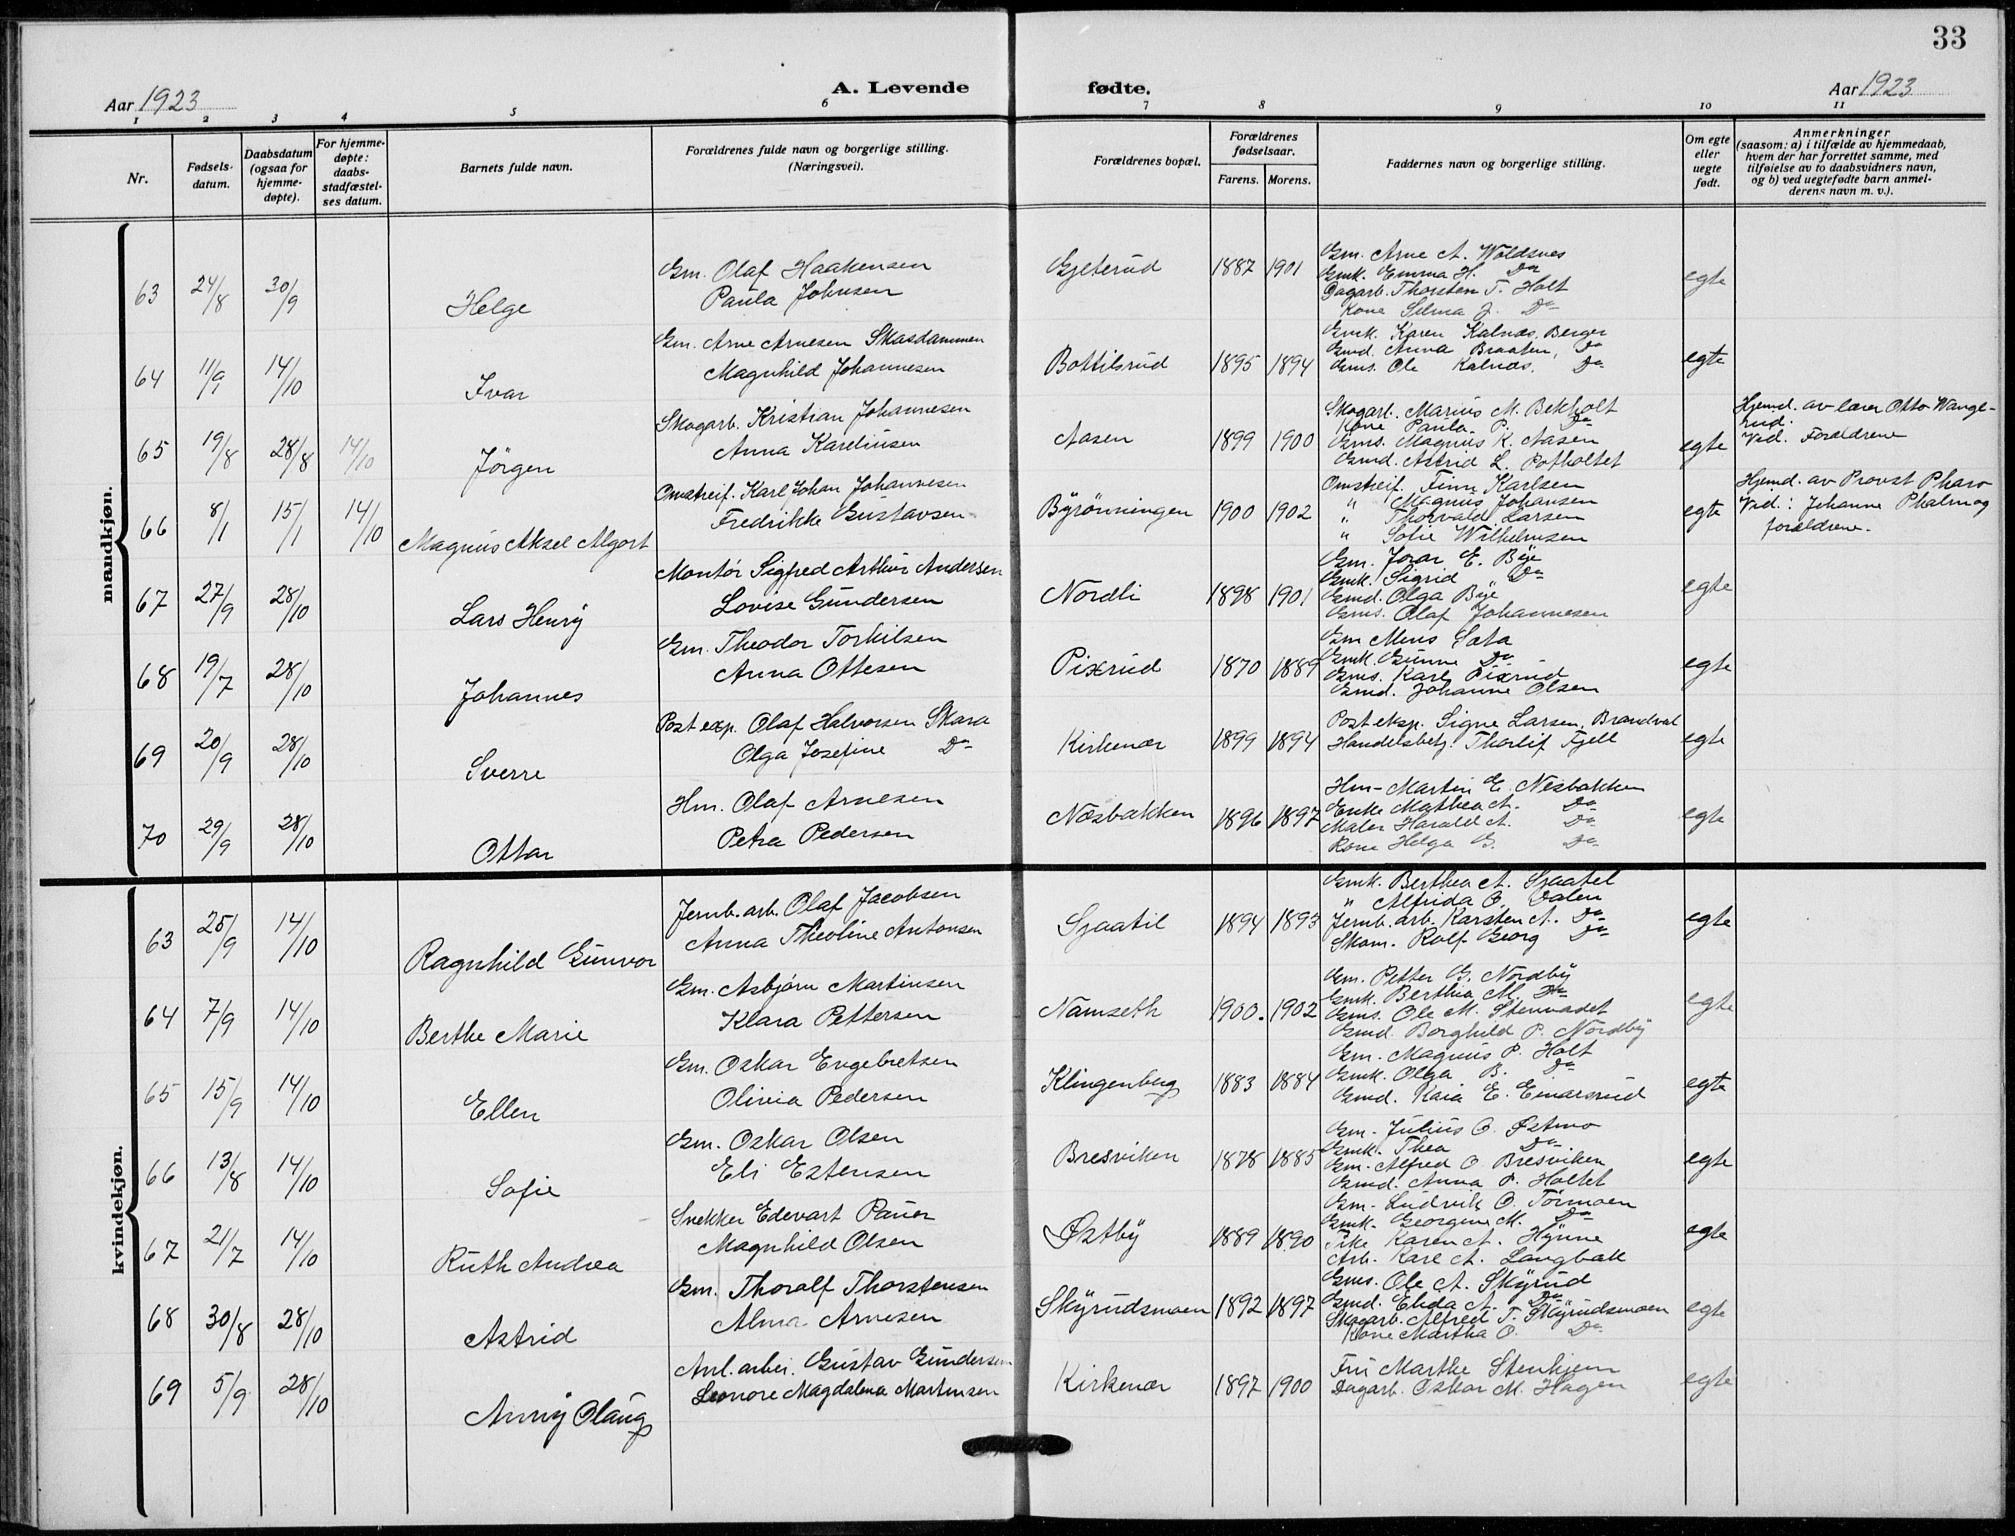 33
Aar 1923 A. Levende fødte. Aar 1923
1 2 3 4 5 6 7 8 9 10 11
Nr.
Fødsels-
datum.
Daabsdatum
(ogsaa for
hjemme-
døpte).
For hjemme-
døpte:
daabs-
stadfæstel-
ses datum.
Barnets fulde navn.
Forældrenes fulde navn og borgerlige stilling.
(Næringsvei).
Forældrenes bopæl.
Forældrenes
fødselsaar.
Farens. Morens.
Faddernes navn og borgerlige stilling.
Om egte
eller
uegte
født.
Anmerkninger
(saasom: a) i tilfælde av hjemmedaab,
hvem der har forrettet samme, med
tilføielse av to daabsvidners navn,
og b) ved uegtefødte barn anmel-
derens navn m. v.).
mandkjøn.
63 24/8 30/9 Helge
Gm. Olaf Haakensen
Paula Johnsen
Gjeterud 1887 1901
Gm. Arne A. Woldsnes
Gmk. Emma H. Do
Dagarb. Thorsten T. Holt
Kone Selma J. Do
egte
64 11/9 14/10 Ivar
Gm. Arne Arnesen Skasdammen
Magnhild Johannesen
Bottilsrud 1895 1894
Gmk. Karen Kalnæs, Berger
Gmd. Anna Braaten, Do
Gms. Ole Kalnæs. Do
egte
65 19/8 28/8 14/10 Jörgen
Skogarb. Kristian Johannesen
Anna Karelinsen
Aasen 1899 1900
Skogarb. Marius M. Bekholt
Kone Paula P. Do
Gms. Magnus K. Aasen
Gmd. Astrid L. Potholtet
egte
Hjemd. av lærer Otto Wange-
rud.
Vid. Forældrene
66 8/1 15/1 14/10 Magnus Aksel Algort
Omstreif. Karl Johan Johannesen
Fredrikke Gustavsen
Byrönningen 1900 1902
Omstreif. Finn Karlsen
" Magnus Johansen
" Thorvald Larsen
" Sofie Wilhelmsen
egte
Hjemd. av Provst Pharo
Vid.: Johanne Phalm og
forældrene.
67 27/9 28/10 Lars Henry
Montör Sigfred Arthur Andersen
Lovise Gundersen
Nordli 1898 1901
Gm. Ivar E. Bye
Gmk. Sigrid Do
Gmd. Olga Bye
Gms. Olaf Johannesen
egte
68 19/7 28/10 Johannes
Gm. Theodor Torkilsen
Anna Ottesen
Pixrud 1870 1889
Gm Mens Sata
Gmk. Gunne Do
Gms. Karl Pixrud
Gmd. Johanne Olsen
egte
69 20/9 28/10 Sverre
Post exp. Olaf Halvorsen Skara
Olga Josefine Do
Kirkenær 1899 1894
Post eksp. Signe Larsen, Brandval
Handelsbetj. Thorlif Fjell
egte
70 29/9 28/10 Ottar
Hm. Olaf Arnesen
Petra Pedersen
Næsbakken 1896 1897
Hm- Martin E. Nesbakken
Enke Mathea A. Do
Maler Harald A. Do
Kone Helga G. Do
egte
kvindekjøn.
63 25/9 14/10 Ragnhild Gunvor
Jernb. arb. Olaf Jacobsen
Anna Theoline Antonsen
Sjaatil 1894 1893
Gmk. Berthea A. Sjaatil
" Alfrida O. Dalen
Jernb. arb. Karsten A. Do
Skom. Rolf Georg Do
egte
64 7/9 14/10 Berthe Marie
Gm. Asbjørn Martinsen
Klara Pettersen
Namseth 1900. 1902
Gm. Petter G. Nordby
Gmk. Berthea M. Do
Gms. Ole M. Stenvadet
Gmd. Borghild P. Nordby
egte
65 15/9 14/10 Ellen
Gm. Oskar Engebretsen
Olivia Pedersen
Klingenberg 1883 1884
Gm. Magnus P. Holt
Gmk. Olga B. Do
Gmd. Kaia E. Einarsrud
egte
66 13/8 14/10 Sofie
Gm. Oskar Olsen
Eli Estensen
Bresviken 1878 1885
Gm. Julius O. Østmo
Gmk. Thea Do
Gm. Alfred O. Bresviken
Gmd. Anna P. Holtet
egte
67 21/7 14/10 Ruth Andrea
Snekker Edevart Pauer
Magnhild Olsen
Østby 1889 1890
Gm. Ludvik O. Tormoen
Gmk. Georgine M. Do
Pike Karen A. Hynne
Arb. Karl A. Langbak
egte
68 30/8 28/10 Astrid
Gm. Thoralf Thorstensen
Alma Arnesen
Skyrudsmoen 1892 1897
Gms. Ole A. Skyrud
Gmd. Elida A. Do
Skogarb. Alfred T. Skyrudsmoen
Kone Martha O. Do
egte
69 5/9 28/10 Anny Olaug
Anl. arbei. Gustav Gundersen
Leonore Magdalena Martinsen
Kirkenær 1897 1900
Fru Marthe Stenhjem
Dagarb. Oskar M. Hagen
egte